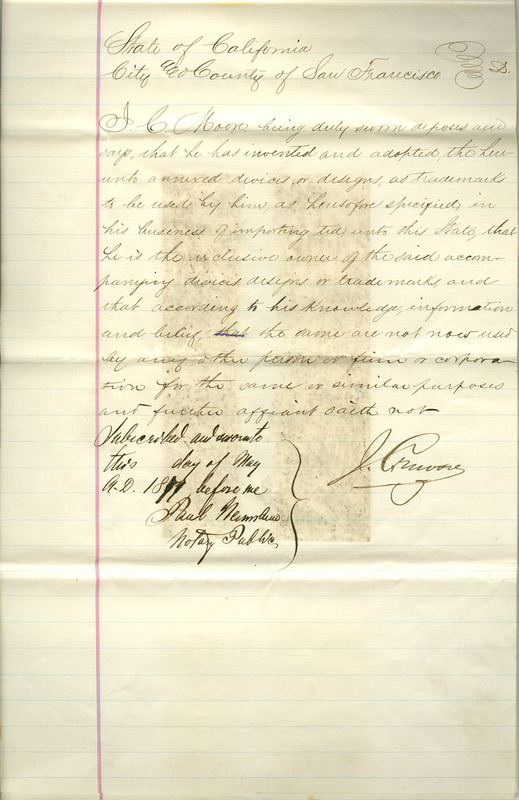 State of California
City & County of San Francisco SS.
J C. Moore being duly sworn deposes and
says, that he has invented and adopted, the here
unto annexed divices, or designs, as trademarks
to be used by him, as heretofore specified, in
his business of importing tea unto this State, that
he is the inclusive owner of the said accom-
panying divices designs or trademarks and
that according to his knowledge, information
and belief, that the same are not now used
by any other person or firm or corpora-
tion for the same or similar purposes
and further affiant saith not
Subscribed and sworn to
this day of May
A.D. 1877 before me
Paul
Notary Public
J. C. Moore